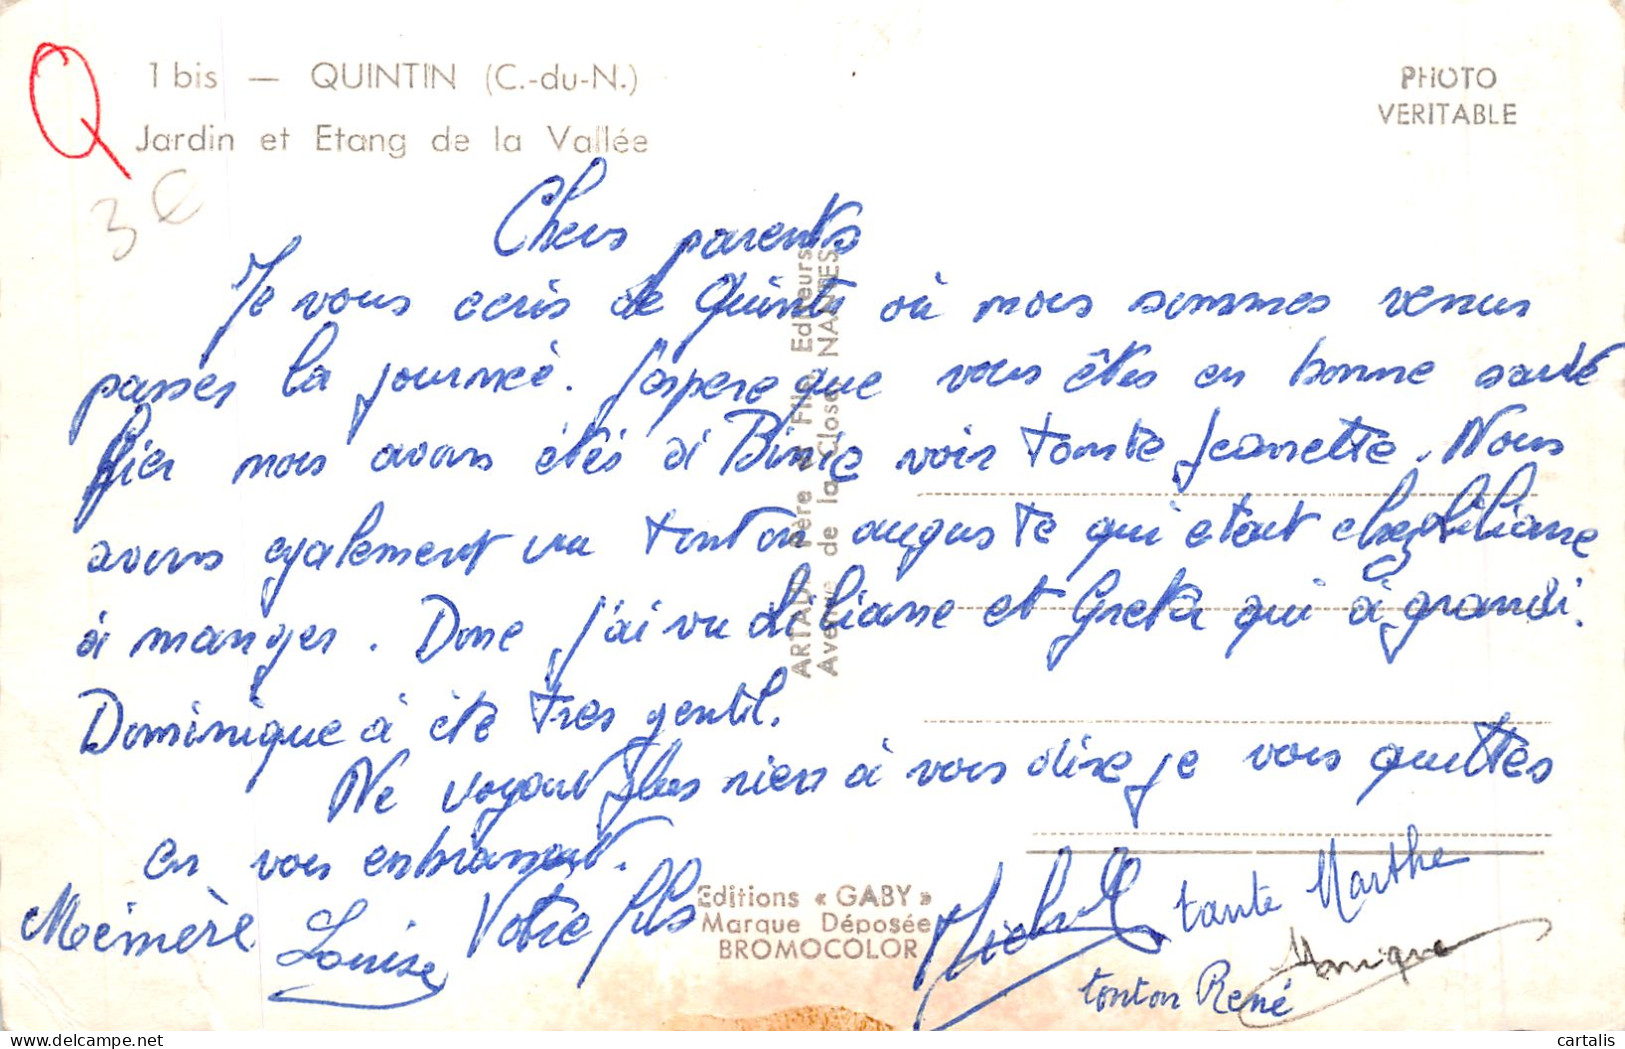 Q
1 bis — QUINTIN (C.-du-N.)
Jardin et Etang de la Vallée
PHOTO
VERITABLE
3 €
Chers parents
Je vous ecris de Quintin où nous sommes venus
passer la journeé. J'espere que vous êtes en bonne santé
Hier nous avons étés à Binic voir tante Jeanette. Nous
avons egalement vu tonton auguste qui etait chez Liliane
à manger. Donc j'ai vu Liliane et Greta qui à grandi.
Dominique à été tres gentil.
Ne voyant plus rien à vous dire je vous quittes
en vous enbrassant.
Votre fils Michel
Mémère Louise
tante Marthe
tonton René
Monique
ARTAUD Père et Fils Editeurs
Avenue de la Close NANTES
Editions « GABY »
Marque Déposée
BROMOCOLOR
delcampe.net
cartalis